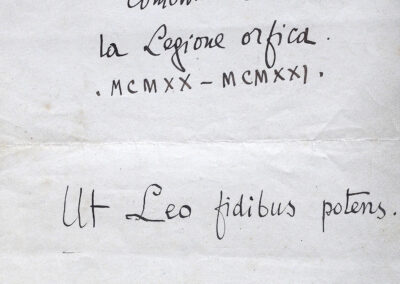 la Legione orfica.
. MCMXX – MCMXXI .
Ut Leo fidibus potens.